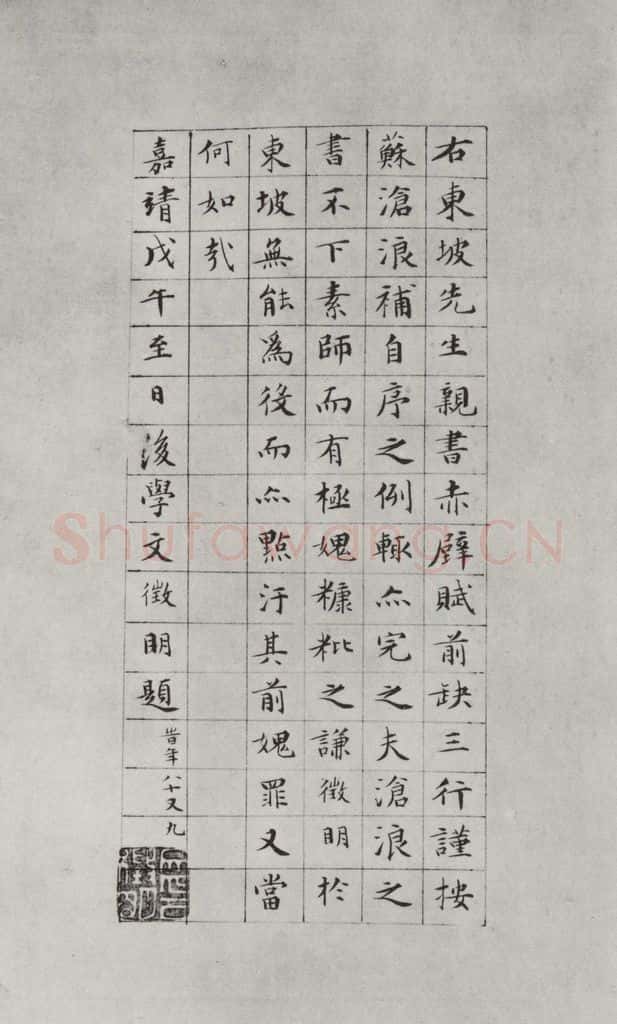 右東坡先生親書赤壁賦前缺三行謹按
蘇滄浪補自序之例輒亦完之夫滄浪之
書不下素師而有極媿糠粃之謙徵明於
東坡無能爲役而亦點汙其前媿罪又當
何如哉
嘉靖戊午至日後學文徵明題
時年八十又九
Shufawang.CN